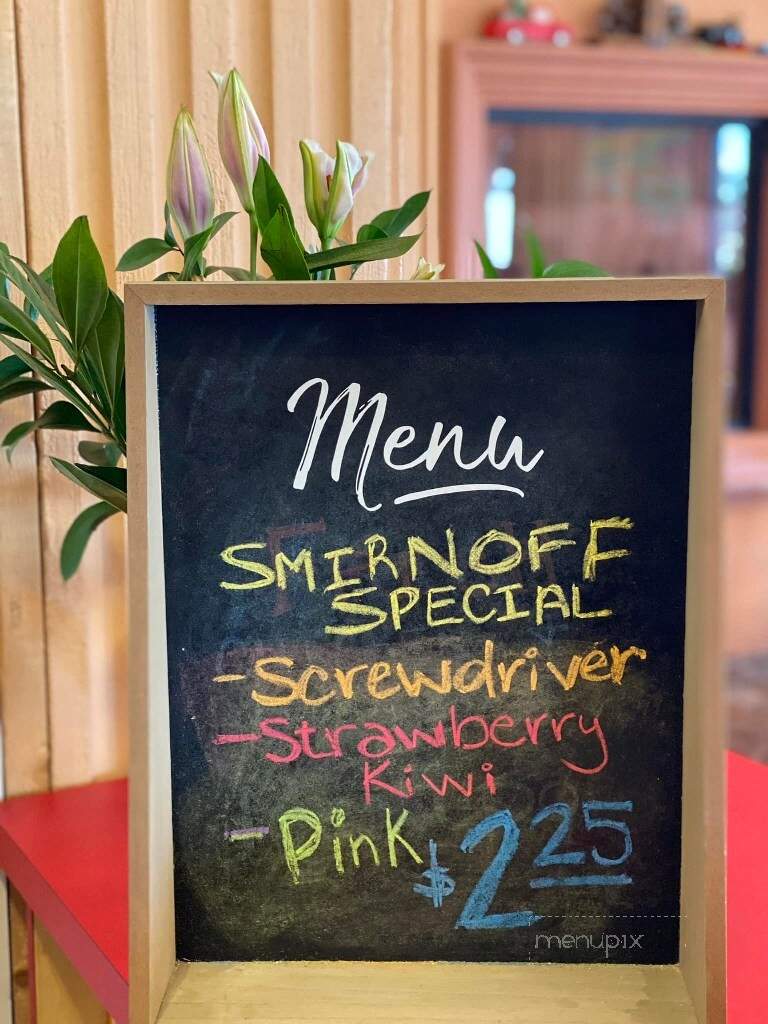 Menu
SMIRNOFF
SPECIAL
- Screwdriver
- Strawberry
Kiwi
- Pink $2.25
menupix